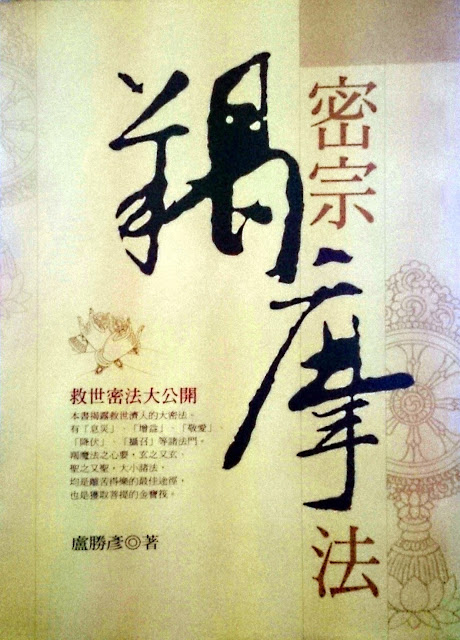 密宗羯摩法
救世密法大公開
本書揭露救世濟人的大密法。
有「息災」、「增益」、「敬愛」、
「降伏」、「攝召」等諸法門。
羯魔法之心要，玄之又玄、
聖之又聖。大小諸法，
均是離苦得樂的最佳途徑，
也是獲取菩提的金寶孩。
盧勝彥◎著